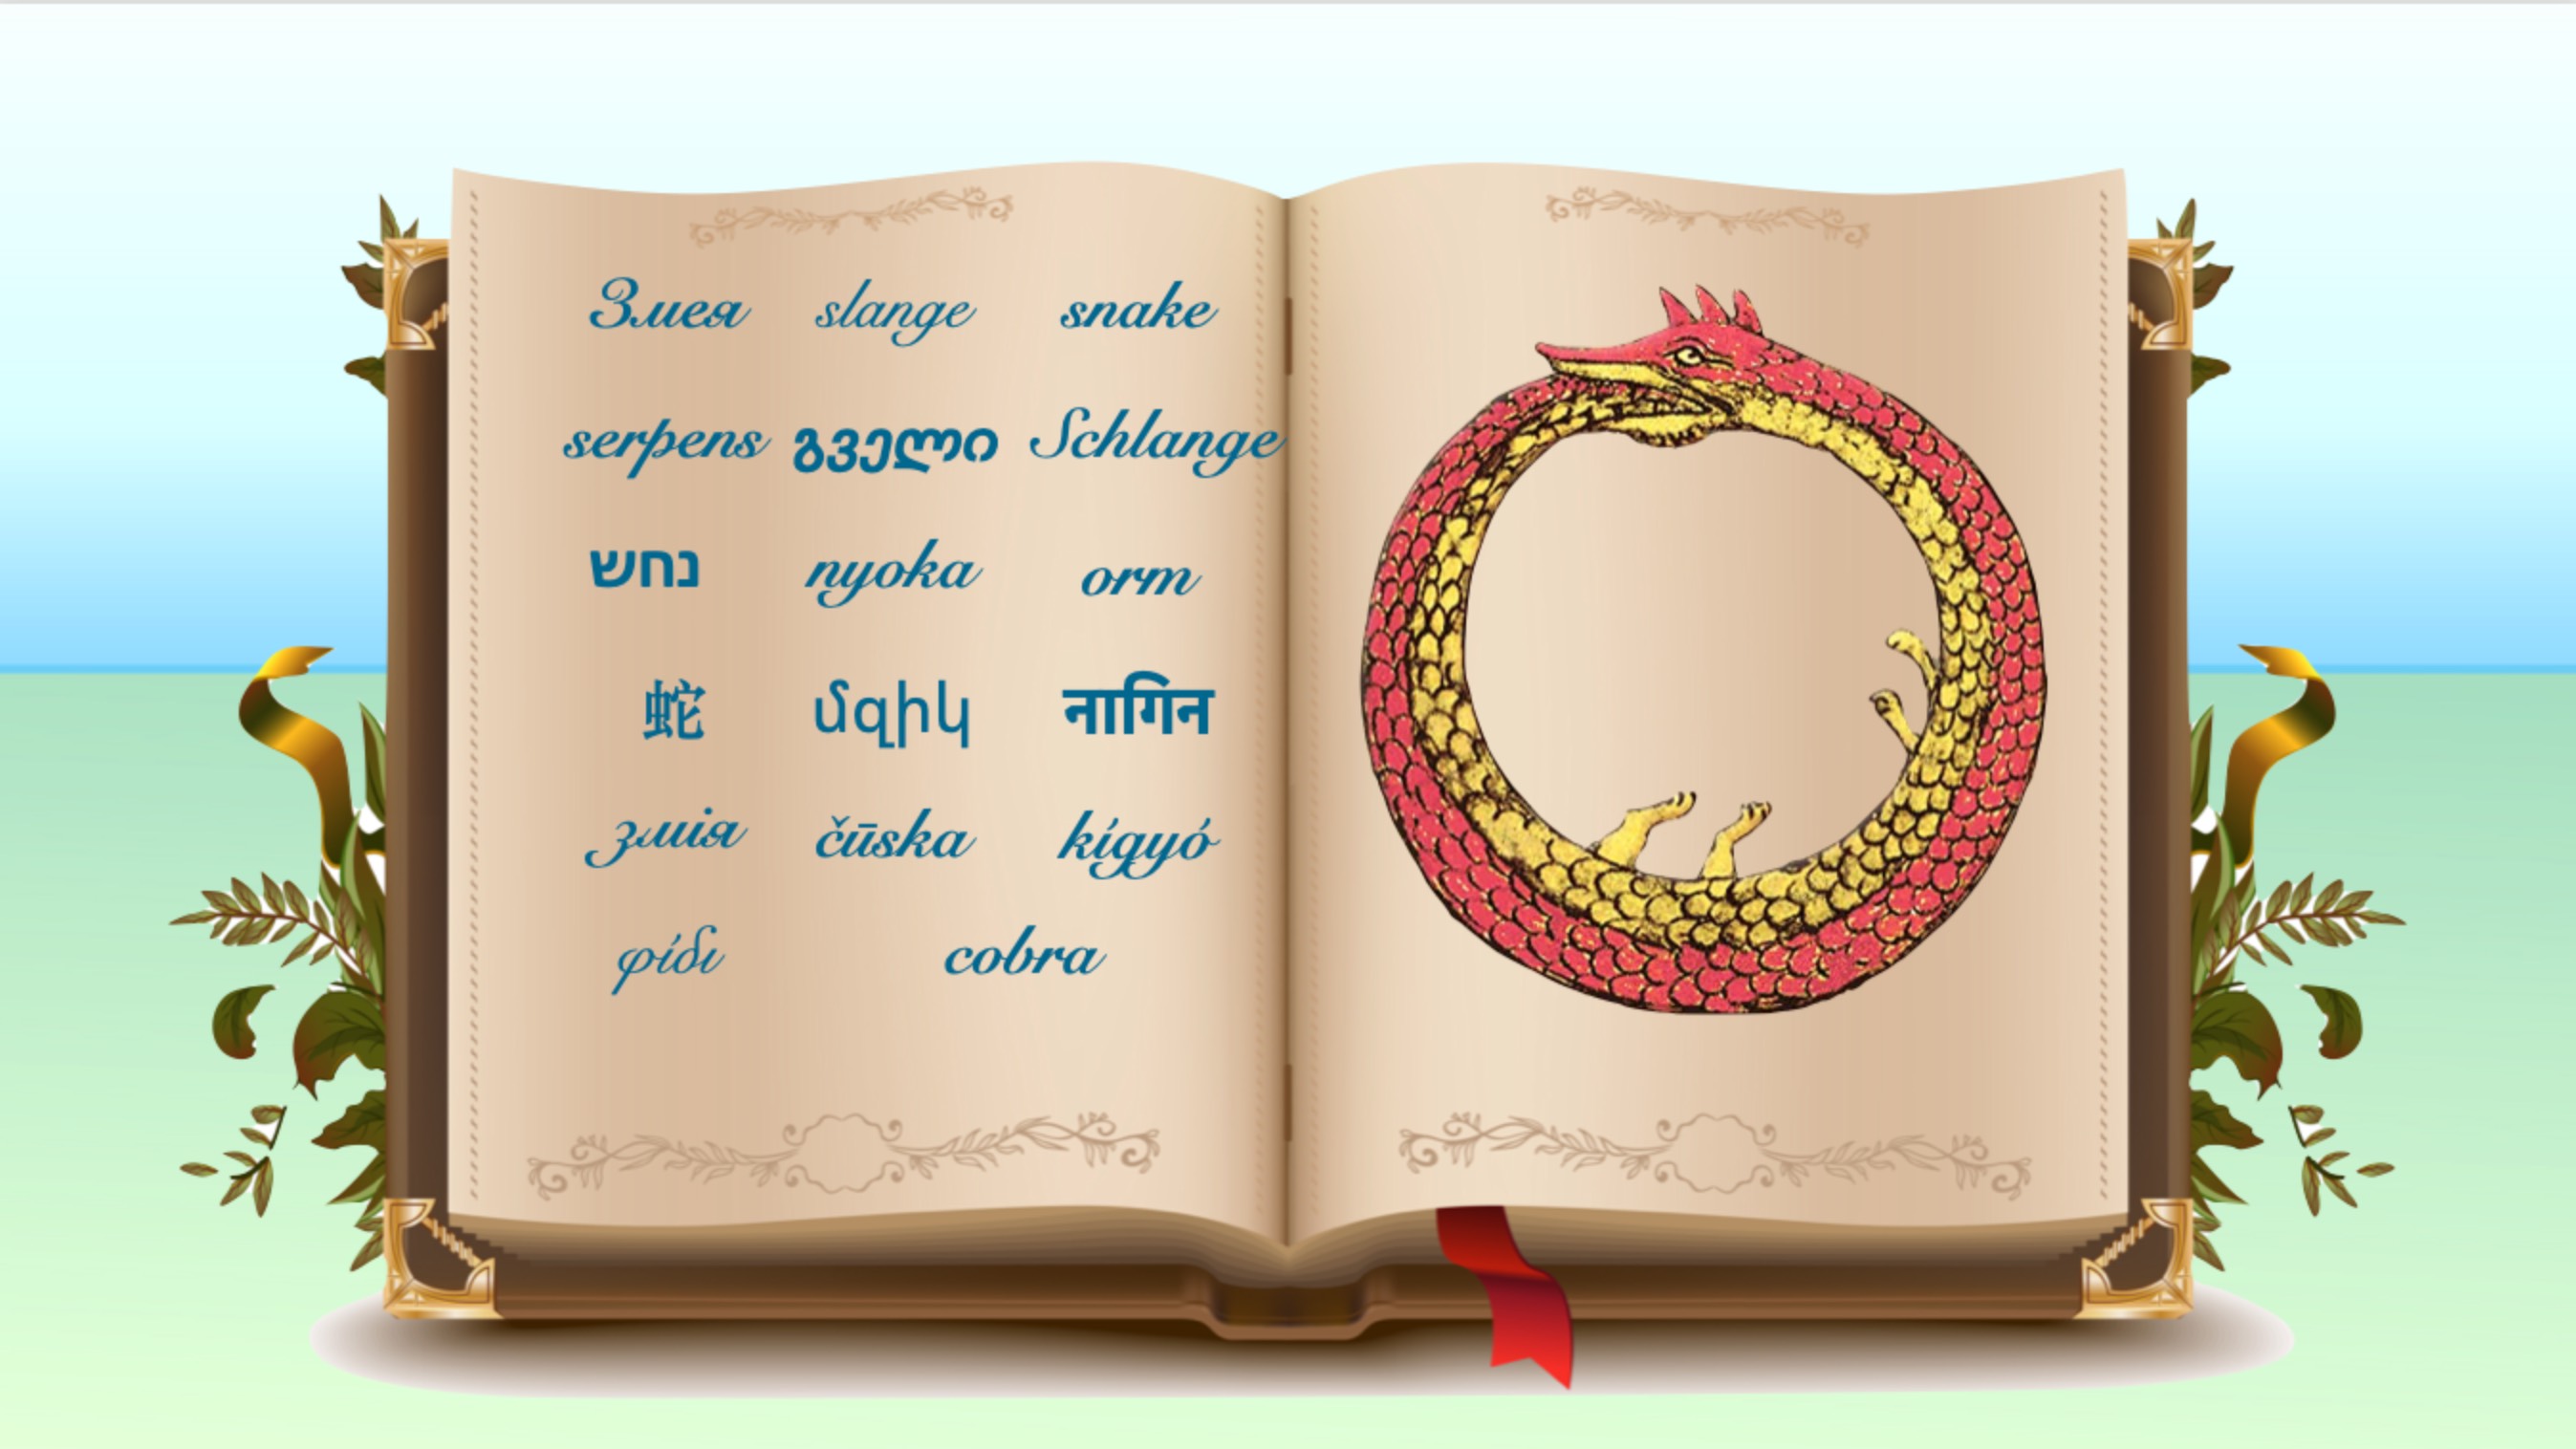 Змея slange snake
serpens გველი Schlange
נחש nyoka orm
蛇 մզիկ नागिन
змія čūska kígyó
φίδι cobra